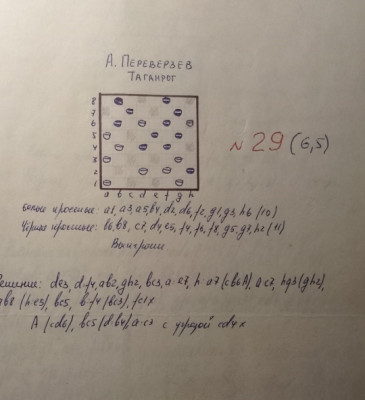 А. ПЕРЕВЕРЗЕВ
ТАГАНРОГ
8
7
6
5
4
3
2
1
a b c d e f g h
№ 29 (6,5)
белые простые: a1, a3, a5, b4, d2, d6, f2, g1, g3, h6 (10)
чёрные простые: b6, b8, c7, d4, e5, f4, f6, f8, g5, g7, h2 (11)
Выигрыш
Решение: de3, d:f4, ab2, gh2, bc3, a:e7, h:a7 (cb6A), a:c7, hg3 (gh2),
ab8 (h:e5), bc5, b:f4 (bc3), fc1x
A (cd6), bc5 (d:b4), a:c7 с угрозой cd4x